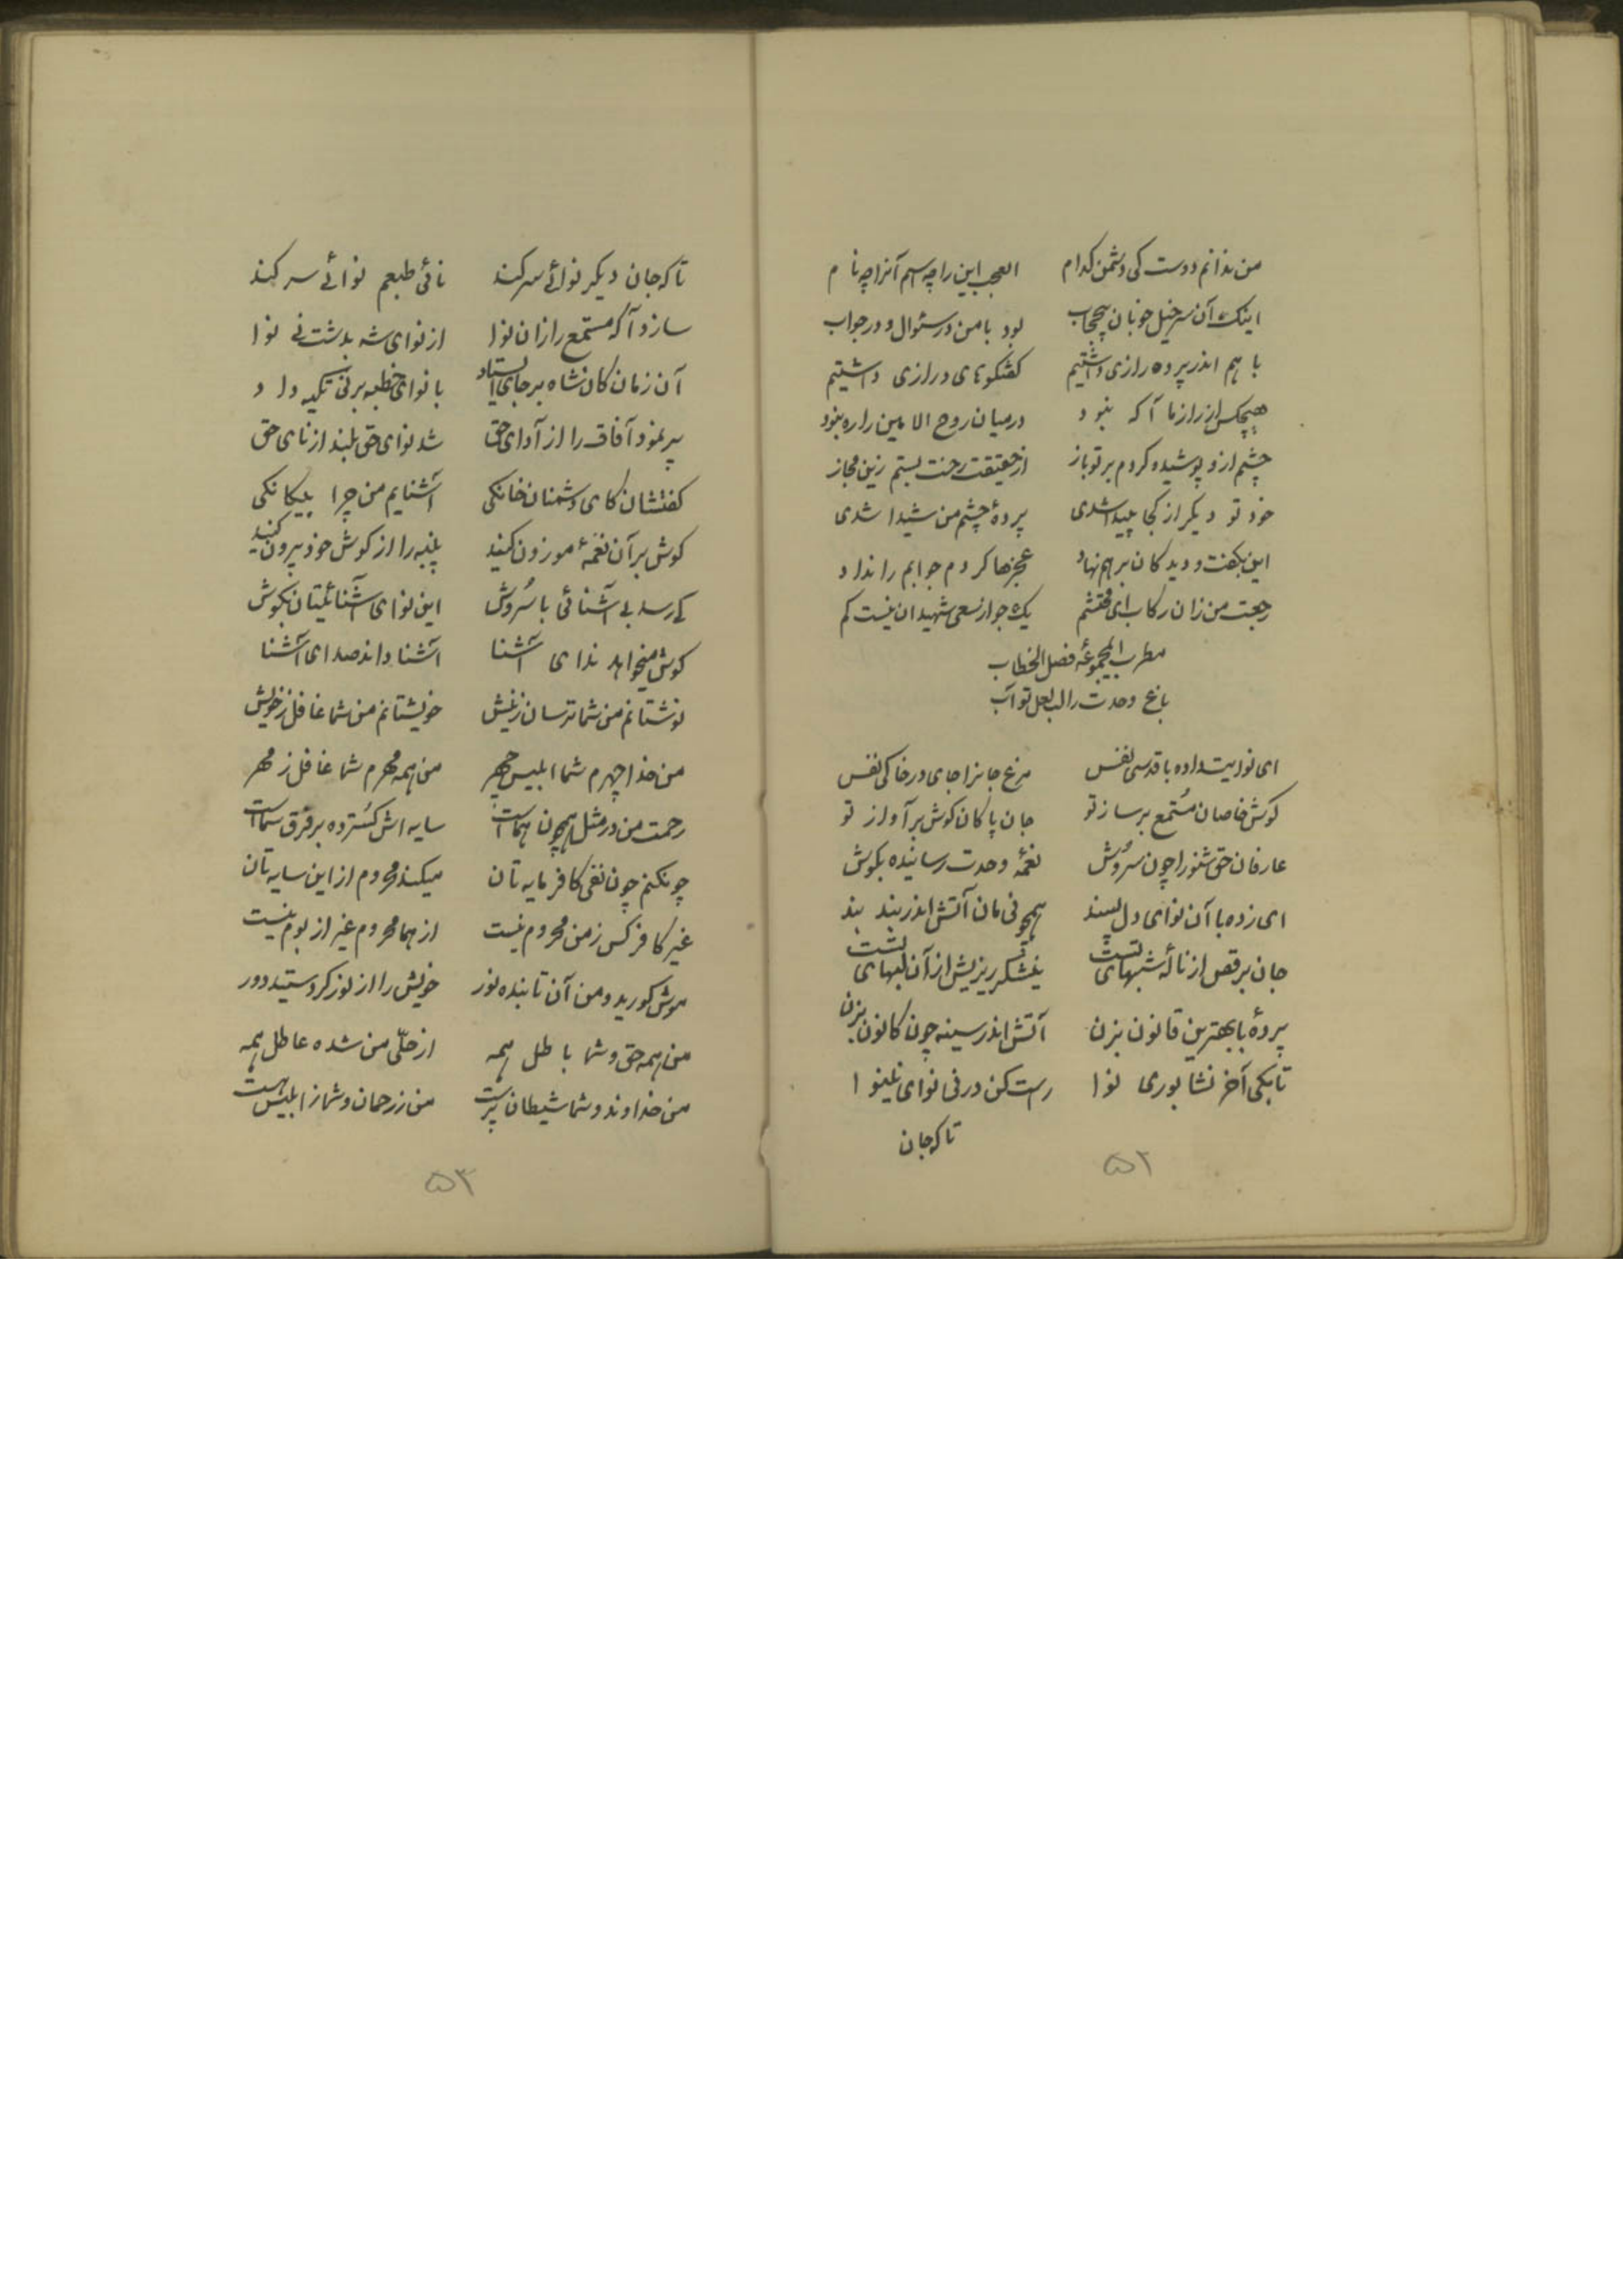 من ندانم دوست کی دشمن کدام العجب این را چه اسم آنرا چه نام
اینک آن سرخیل خوبان بیحجاب بود با من در سئوال و در جواب
با هم اندر پرده رازی داشتیم کفتکوهای درازی داشتیم
هیچکس از راز ما آکه نبود در میان روح الامین را ره نبود
چشم ازو پوشیده کردم بر تو باز از حقیقت رخت بستم زین مجاز
خود تو دیکر از کجا پیدا شدی پردهٔ چشم من شیدا شدی
این بکفت و دیدکان بر هم نهاد عجزها کردم جوابم را نداد
رجعت من زان رکاب ای محتشم یک جو از سعی شهیدان نیست کم
مطرب المجموعه فصل الخطاب
باغ وحدت را لب لعل تو آب
ای نوایت داده با قدسی نفس مرغ جانرا جای در خاکی قفس
کوش خاصان مُستمع بر ساز تو جان پاکان کوش بر آواز تو
عارفان حق شنو را چون سروش نغمهٔ وحدت رسانیده بکوش
ای زده با آن نوای دل پسند همچو نی مان آتش اندر بند بند
جان برقص از نالهٔ شبهای تست نیشکر ریزیش از آن لبهای تست
پردهٔ با بهترین قانون بزن آتش اندر سینه چون کانون بزن
تا بکی آخر نشابوری نوا راست کن در نی نوای نینوا
تا که جان
۵۲
تا که جان دیکر نوائے سر کند نائی طبعم نوائے سر کند
سازد آکه مستمع را زان نوا از نوای شه بدشت نے نوا
آن زمان کان شاه بر جای ایستاد با نوای خطبه بر نی تکیه داد
پر نمود آفاق را از آوای حق شد نوای حق بلند از نای حق
کفتشان کای دشمنان خانکی آشنایم من چرا بیکانکی
کوش بر آن نغمهٔ موزون کنید پنبه را از کوش خود بیرون کنید
کے رسد بے آشنائی با سُروش این نوای آشنائیتان بکوش
کوش میخواهد ندای آشنا آشنا داند صدای آشنا
نوشتانم من شما ترسان ز نیش خویشتانم من شما غافل ز خویش
من خدا چهرم شما ابلیس چهر من همه مهرم شما غافل ز مهر
رحمت من در مثل همچون هماست سایه اش کسترده بر فرق شماست
چونکنم چون نفس کافر مایه تان میکند محروم از این سایه تان
غیر کافر کس ز من محروم نیست از هما محروم غیر از بوم نیست
موش کورید و من آن تابنده نور خویش را از نور کردستید دور
من همه حق و شما باطل همه از حلّی من شده عاطل همه
من خداوند و شما شیطان پرست من ز رحمان و شما ز ابلیس مست
۵۳